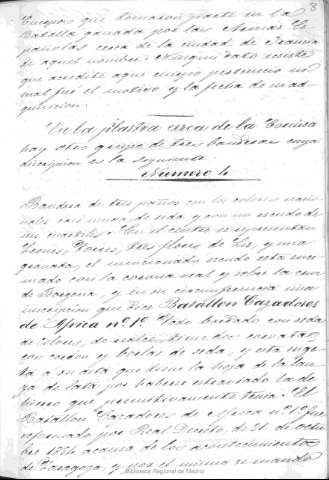 8
Cuerpos que tomaron parte en la
Batalla ganada por las Armas Es
pañolas cerca de la ciudad de
de aquel nombre. Ningun dato existe
que acredite a que cuerpo perteneció ni
cual fué el motivo y la fecha de su ad
quisicion.
En la pilastra cerca de la Cornisa
hay otro grupo de tres banderas cuya
descripcion es la siguiente.
Numero 4
Bandera de tres paños con los colores nacio
nales de seda y con un escudo de
seis cuarteles. En el centro se representan
Leones, Torres, tres flores de Lis, y una
granada, el mencionado escudo está coro
nado con la corona real y sobre la cruz
de Borgoña, y en su circunferencia una
inscripcion que dice Batallon Cazadores
de Africa nº 1º todo bordado con sedas
de colores, de tiene dos corbatas
con cordon y borlas de seda, y está suge
ta a un asta que tiene la hoja de la lan
za de lata por haberse estraviado la de
bronce que primitivamente tenia. El
Batallon Cazadores de Africa nº 1º fué
reformado por Real Decreto, de 21 de octu
bre 1854 a causa de los acontecimientos
de Zaragoza, y por el mismo se mandó
Biblioteca Regional de Madrid